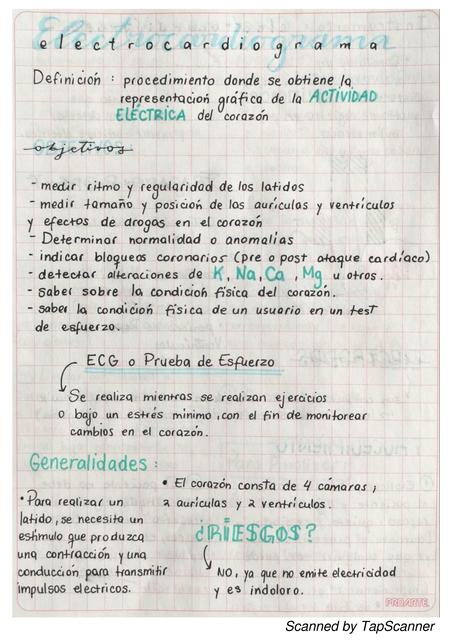 Electrocardiograma
electrocardiograma
Definición : procedimiento donde se obtiene la
representación gráfica de la ACTIVIDAD
ELÉCTRICA del corazón
objetivos
- medir ritmo y regularidad de los latidos
- medir tamaño y posición de las aurículas y ventrículos
y efectos de drogas en el corazón
- Determinar normalidad o anomalías
- indicar bloqueos coronarios (pre o post ataque cardíaco)
- detectar alteraciones de K, Na, Ca , Mg u otros.
- saber sobre la condición física del corazón.
- saber la condición física de un usuario en un test
de esfuerzo.
ECG o Prueba de Esfuerzo
Se realiza mientras se realizan ejercicios
o bajo un estrés mínimo, con el fin de monitorear
cambios en el corazón.
Generalidades :
• El corazón consta de 4 cámaras,
2 aurículas y 2 ventrículos.
• Para realizar un
latido, se necesita un
estímulo que produzca
una contracción y una
conducción para transmitir
impulsos electricos.
¿RIESGOS?
NO, ya que no emite electricidad
y es indoloro.
PROARTE
Scanned by TapScanner